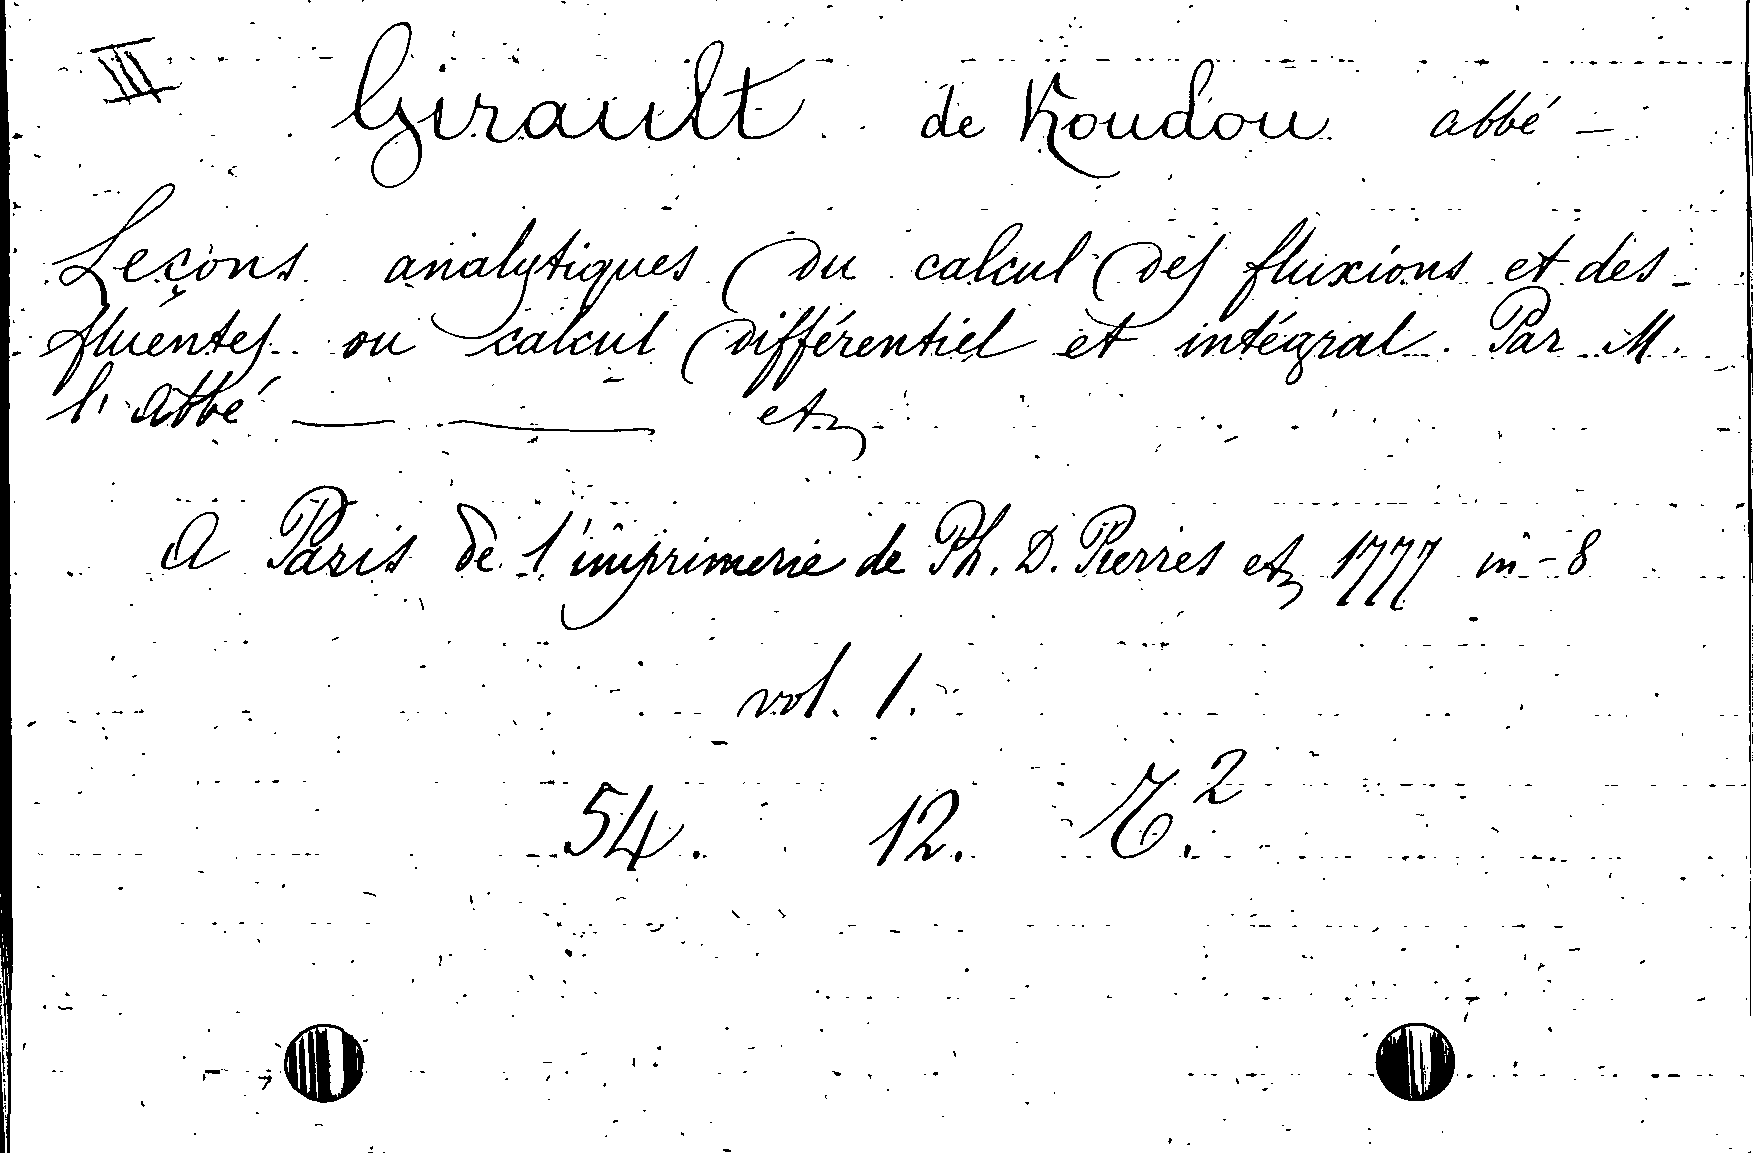 III Girault de Koudou abbé -
Leçons analytiques du calcul des fluxions et des
fluentes ou calcul différentiel et intégral. Par M.
l'abbé — — etc
A Paris de l'imprimerie de Ph. D. Pierres etc 1777 in-8
vol. 1.
54. 12. 2